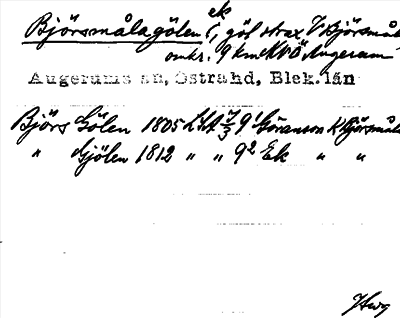 ek
Björsmålagölen (, göl strax V Björsmåla
omkr. 9 km NVÖ Augerum
Augerums sn, Östra hd, Blek. län
Björs Gölen 1805 LSA 9¹ Göranson K Björsmåla
" Gjölen 1812 " " 9² Ek " "
Hwg